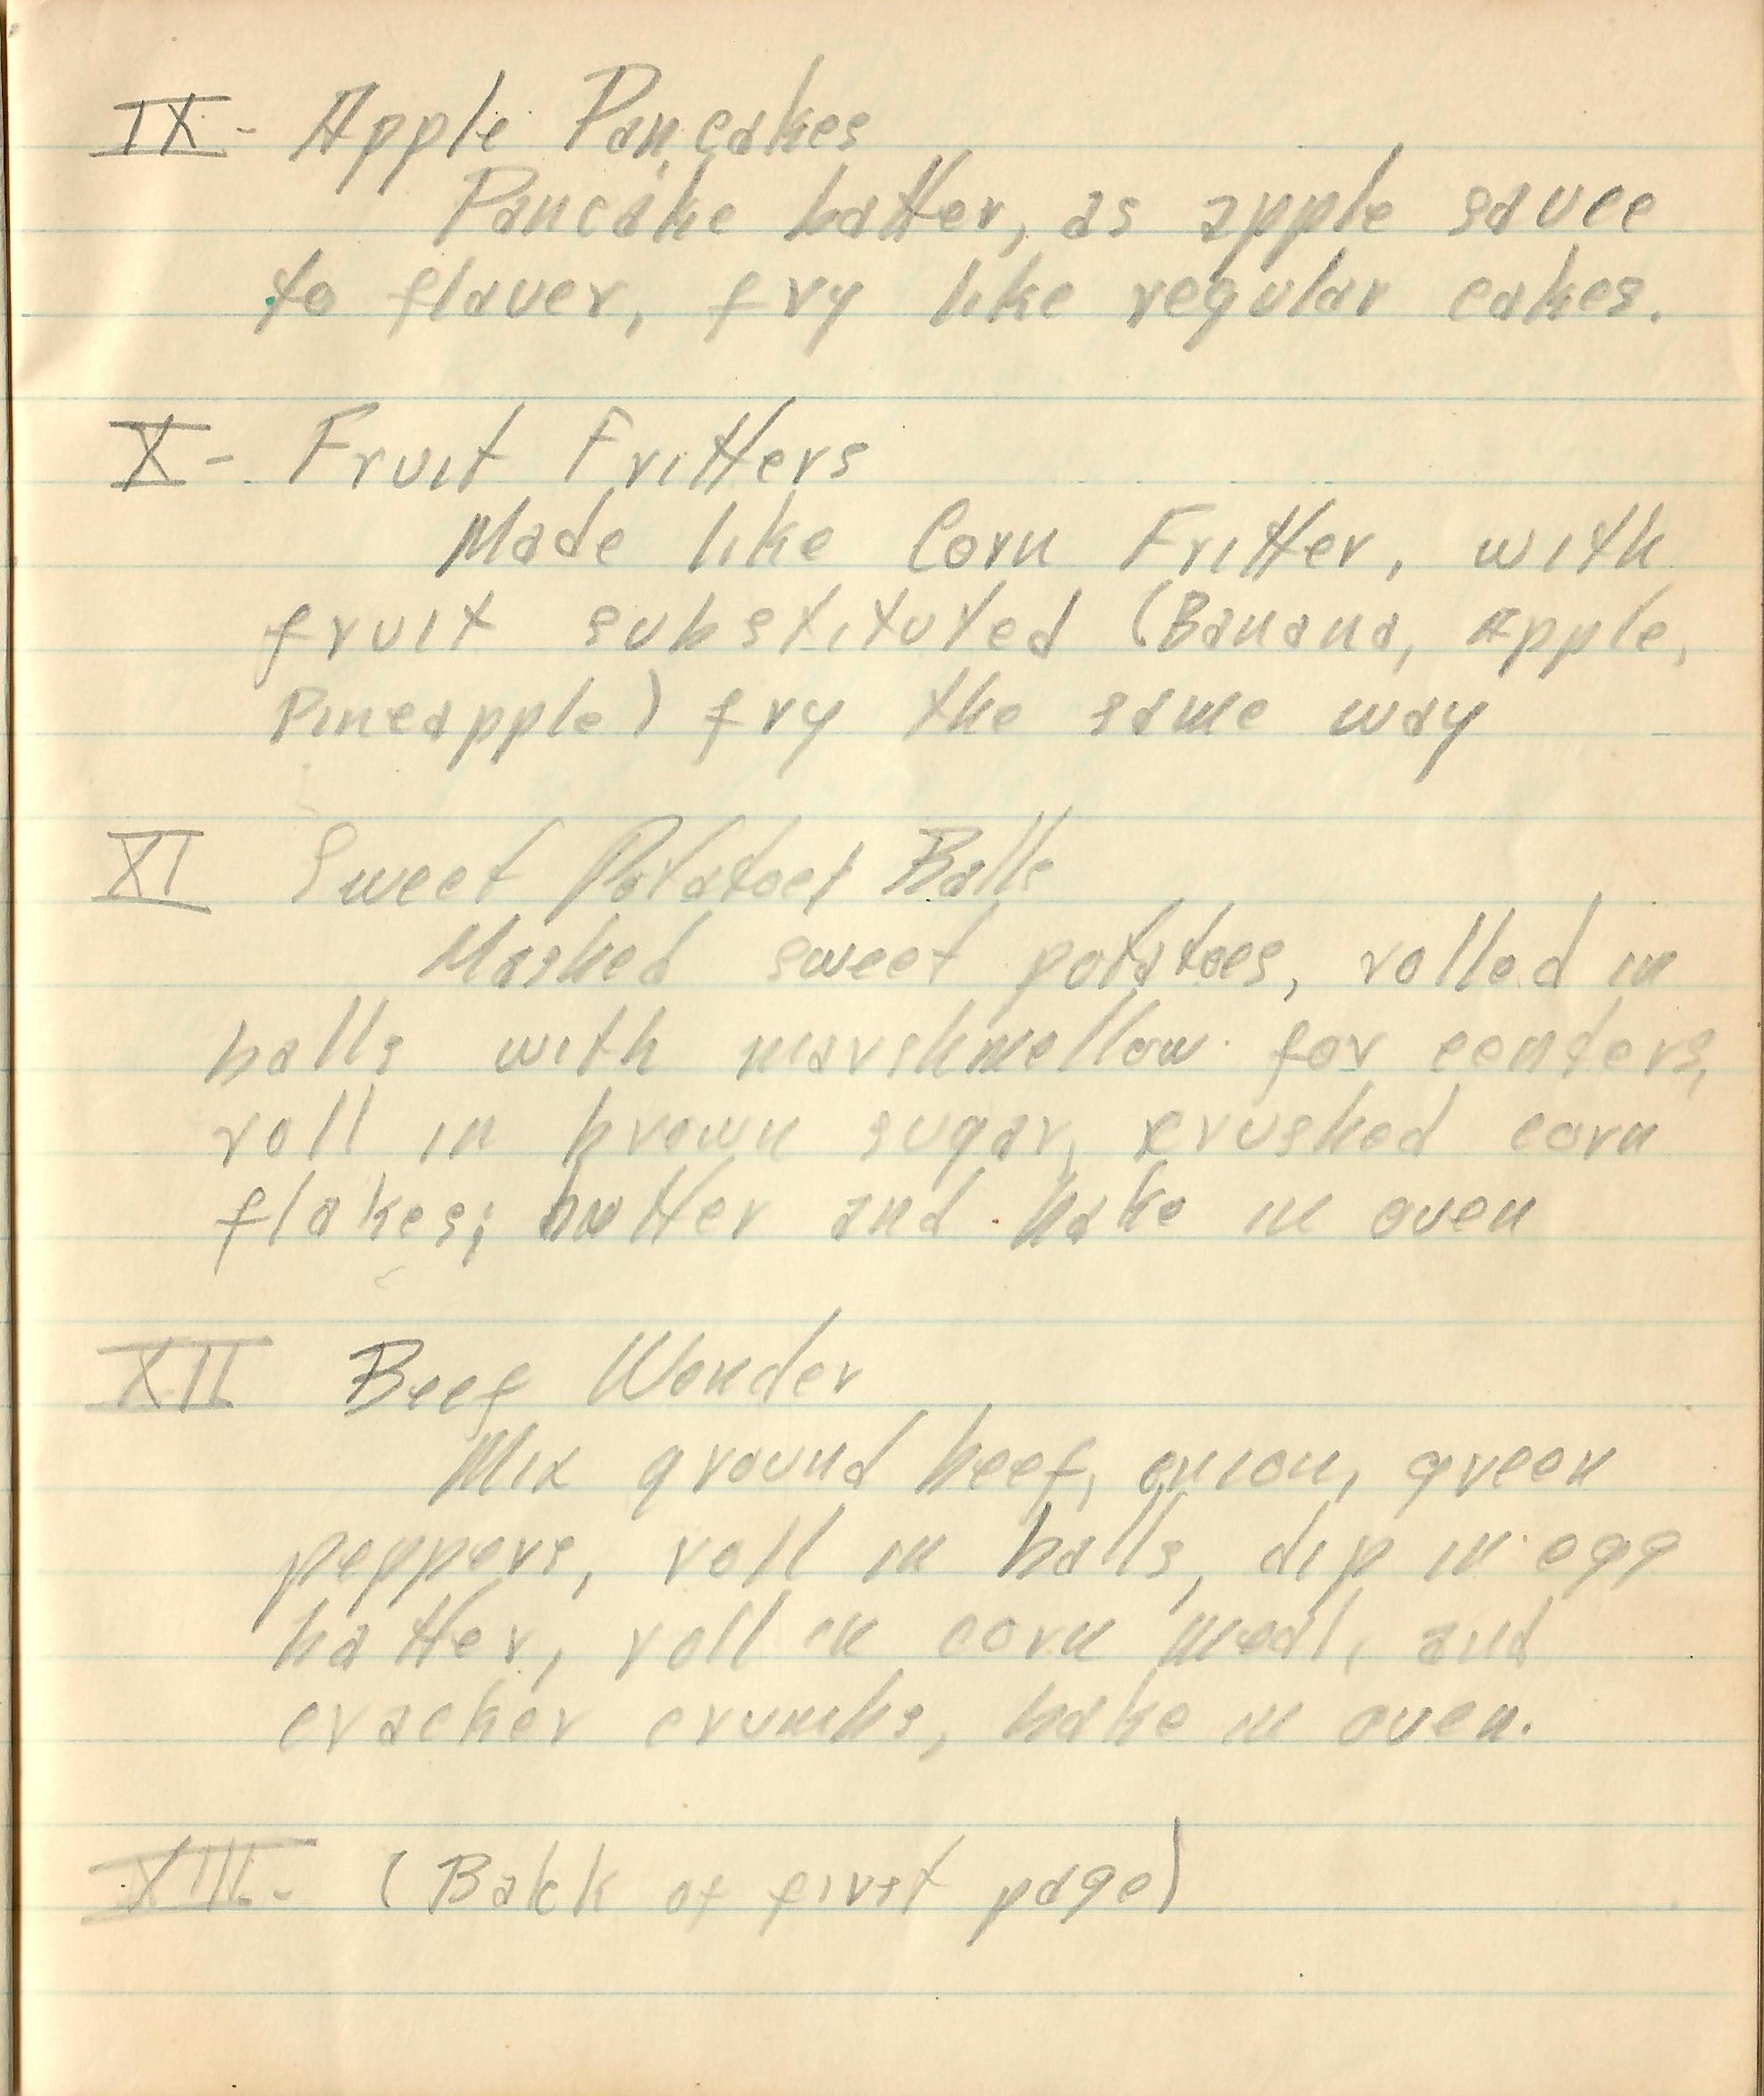 IX - Apple Pancakes
Pancake batter, as apple sauce
to flaver, fry like regular cakes.
X - Fruit Fritters
Made like Corn Fritter, with
fruit substituted (Banana, Apple,
Pineapple) fry the same way
XI Sweet Potatoes Balls
Mashed sweet potatoes, rolled in
balls with marshmellow for centers,
roll in brown sugar, crushed corn
flakes; butter and bake in oven
XII Beef Wonder
Mix ground beef, onion, green
peppers, roll in balls, dip in egg
batter, roll in corn meal, and
cracker crumbs, bake in oven.
XIII - (Back of first page)